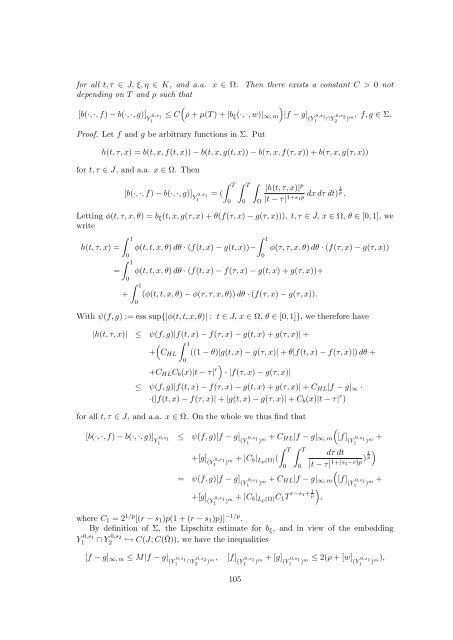 for all t, τ ∈ J, ξ, η ∈ K, and a.a. x ∈ Ω. Then there exists a constant C > 0 not
depending on T and ρ such that
[b(·, ·, f) − b(·, ·, g)]_{Y_1^{0,s_1}} ≤ C(ρ + μ(T) + |b_ξ(·, ·, w)|_{∞,m})|f − g|_{(Y_1^{0,s_1}∩Y_2^{0,s_2})^m}, f, g ∈ Σ.
Proof. Let f and g be arbitrary functions in Σ. Put
h(t, τ, x) = b(t, x, f(t, x)) − b(t, x, g(t, x)) − b(τ, x, f(τ, x)) + b(τ, x, g(τ, x))
for t, τ ∈ J, and a.a. x ∈ Ω. Then
[b(·, ·, f) − b(·, ·, g)]_{Y_1^{0,s_1}} = (∫_0^T ∫_0^T ∫_Ω |h(t, τ, x)|^p / |t − τ|^{1+s_1p} dx dτ dt)^{1/p}.
Letting ϕ(t, τ, x, θ) = b_ξ(t, x, g(τ, x) + θ(f(τ, x) − g(τ, x))), t, τ ∈ J, x ∈ Ω, θ ∈ [0, 1], we
write
h(t, τ, x) = ∫_0^1 ϕ(t, t, x, θ) dθ · (f(t, x) − g(t, x)) − ∫_0^1 ϕ(τ, τ, x, θ) dθ · (f(τ, x) − g(τ, x))
= ∫_0^1 ϕ(t, t, x, θ) dθ · (f(t, x) − f(τ, x) − g(t, x) + g(τ, x))+
+ ∫_0^1 (ϕ(t, t, x, θ) − ϕ(τ, τ, x, θ)) dθ · (f(τ, x) − g(τ, x)).
With ψ(f, g) := ess sup{|ϕ(t, t, x, θ)| : t ∈ J, x ∈ Ω, θ ∈ [0, 1]}, we therefore have
|h(t, τ, x)| ≤ ψ(f, g)|f(t, x) − f(τ, x) − g(t, x) + g(τ, x)| +
+(C_{HL} ∫_0^1 ((1 − θ)|g(t, x) − g(τ, x)| + θ|f(t, x) − f(τ, x)|) dθ +
+C_{HL}C_b(x)|t − τ|^r) · |f(τ, x) − g(τ, x)|
≤ ψ(f, g)|f(t, x) − f(τ, x) − g(t, x) + g(τ, x)| + C_{HL}|f − g|_∞ ·
·(|f(t, x) − f(τ, x)| + |g(t, x) − g(τ, x)| + C_b(x)|t − τ|^r)
for all t, τ ∈ J, and a.a. x ∈ Ω. On the whole we thus find that
[b(·, ·, f) − b(·, ·, g)]_{Y_1^{0,s_1}} ≤ ψ(f, g)[f − g]_{(Y_1^{0,s_1})^m} + C_{HL}|f − g|_{∞,m}([f]_{(Y_1^{0,s_1})^m} +
+[g]_{(Y_1^{0,s_1})^m} + |C_b|_{L_p(Ω)}(∫_0^T ∫_0^T dτ dt / |t − τ|^{1+(s_1−r)p})^{1/p})
= ψ(f, g)[f − g]_{(Y_1^{0,s_1})^m} + C_{HL}|f − g|_{∞,m}([f]_{(Y_1^{0,s_1})^m} +
+[g]_{(Y_1^{0,s_1})^m} + |C_b|_{L_p(Ω)}C_1T^{r−s_1+1/p}),
where C_1 = 2^{1/p}[(r − s_1)p(1 + (r − s_1)p)]^{−1/p}.
By definition of Σ, the Lipschitz estimate for b_ξ, and in view of the embedding
Y_1^{0,s_1} ∩ Y_2^{0,s_2} ↪ C(J; C(Ω̄)), we have the inequalities
|f − g|_{∞,m} ≤ M|f − g|_{(Y_1^{0,s_1}∩Y_2^{0,s_2})^m}, [f]_{(Y_1^{0,s_1})^m} + [g]_{(Y_1^{0,s_1})^m} ≤ 2(ρ + [w]_{(Y_1^{0,s_1})^m}),
105